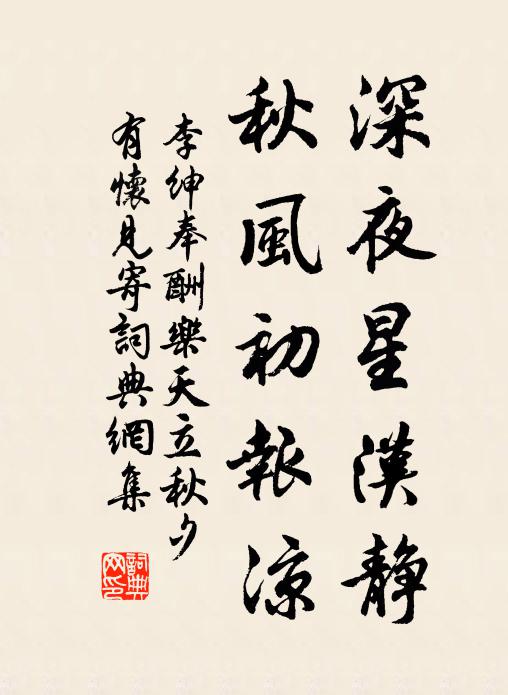 深夜星漢靜
秋風初報涼
李紳奉酬樂天立秋夕
有懷見寄詞典網集
詞典
网印